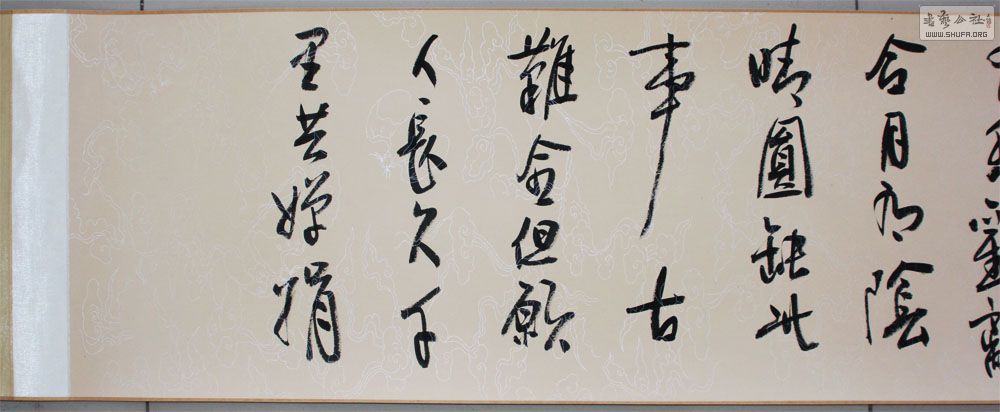 歡離
合月有陰
晴圓缺此
事古
難全但願
人長久千
里共嬋娟
書藝公社
WWW.SHUFA.ORG